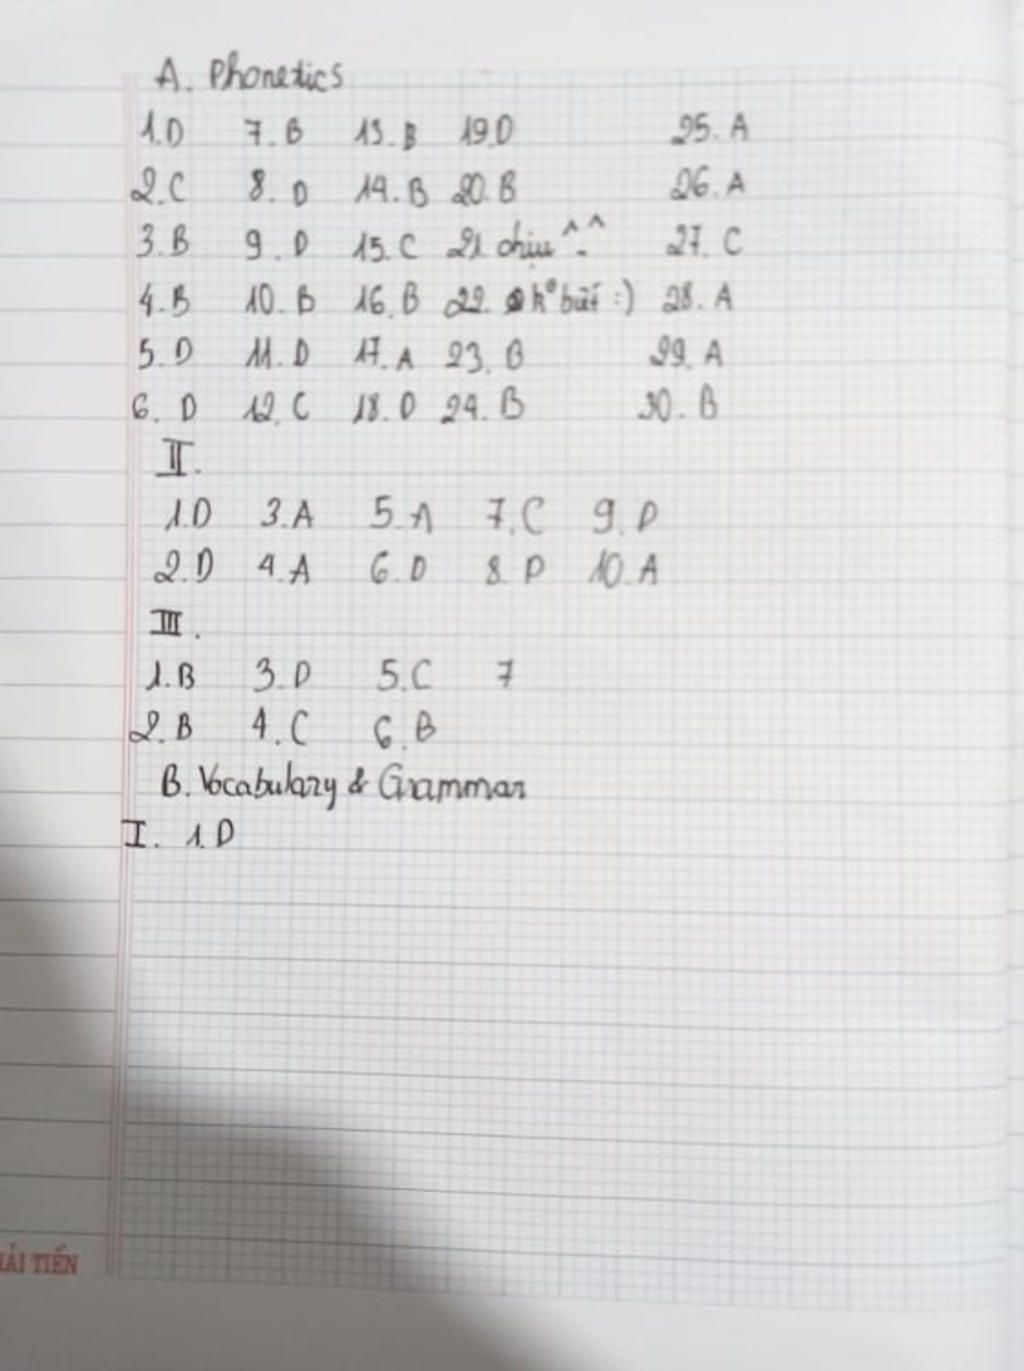 A. Phonetics
1.D 7.B 13.B 19.D 25.A
2.C 8.D 14.B 20.B 26.A
3.B 9.D 15.C 21 chịu ^-^ 27.C
4.B 10.B 16.B 22. k° biết :) 28.A
5.D 11.D 17.A 23.B 29.A
6.D 12.C 18.D 24.B 30.B
II.
1.D 3.A 5.A 7.C 9.D
2.D 4.A 6.D 8.D 10.A
III.
1.B 3.D 5.C 7
2.B 4.C 6.B
B. Vocabulary & Grammar
I. 1.D
ẢI TIẾN